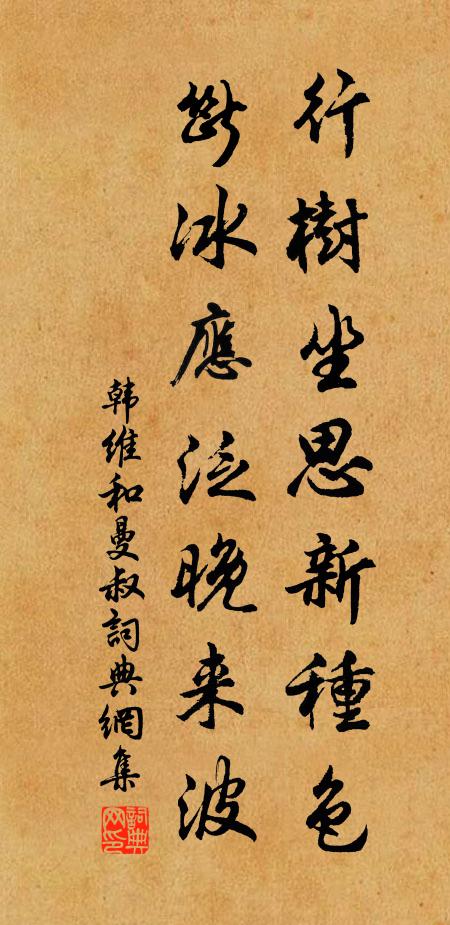 行樹坐思新種色
断冰應泛晚来波
韩維和曼叔詞典網集
詞典網印